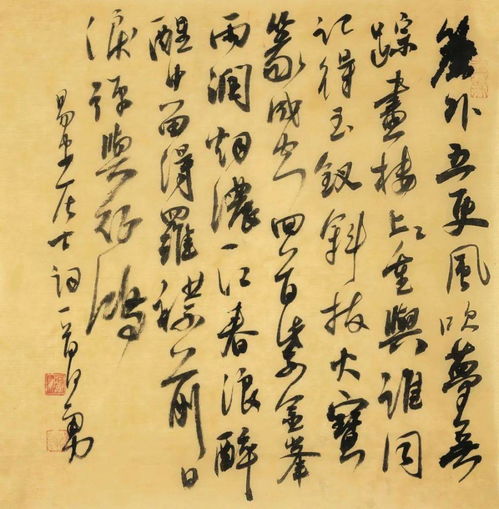 簾外五更風吹夢無
踪畫樓上重與誰同
記得玉釵斜撥火寶
篆成空回首紫金峯
雨潤烟濃一江春浪醉
醒中留得羅襟前日
淚彈與征鴻
易安居士詞一首勇